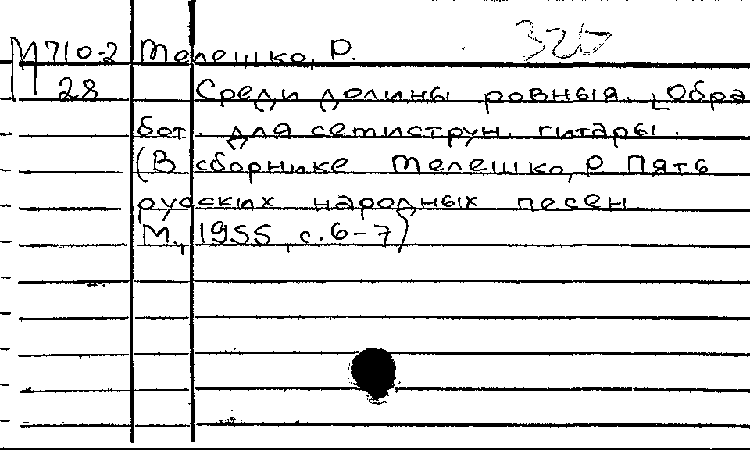 М710-2 Мелешко, Р. 325
28 Среди долины ровныя [Обра
бот. для семиструн. гитары.
(В сборнике Мелешко, Р Пять
русских народных песен
М., 1955, с. 6-7)